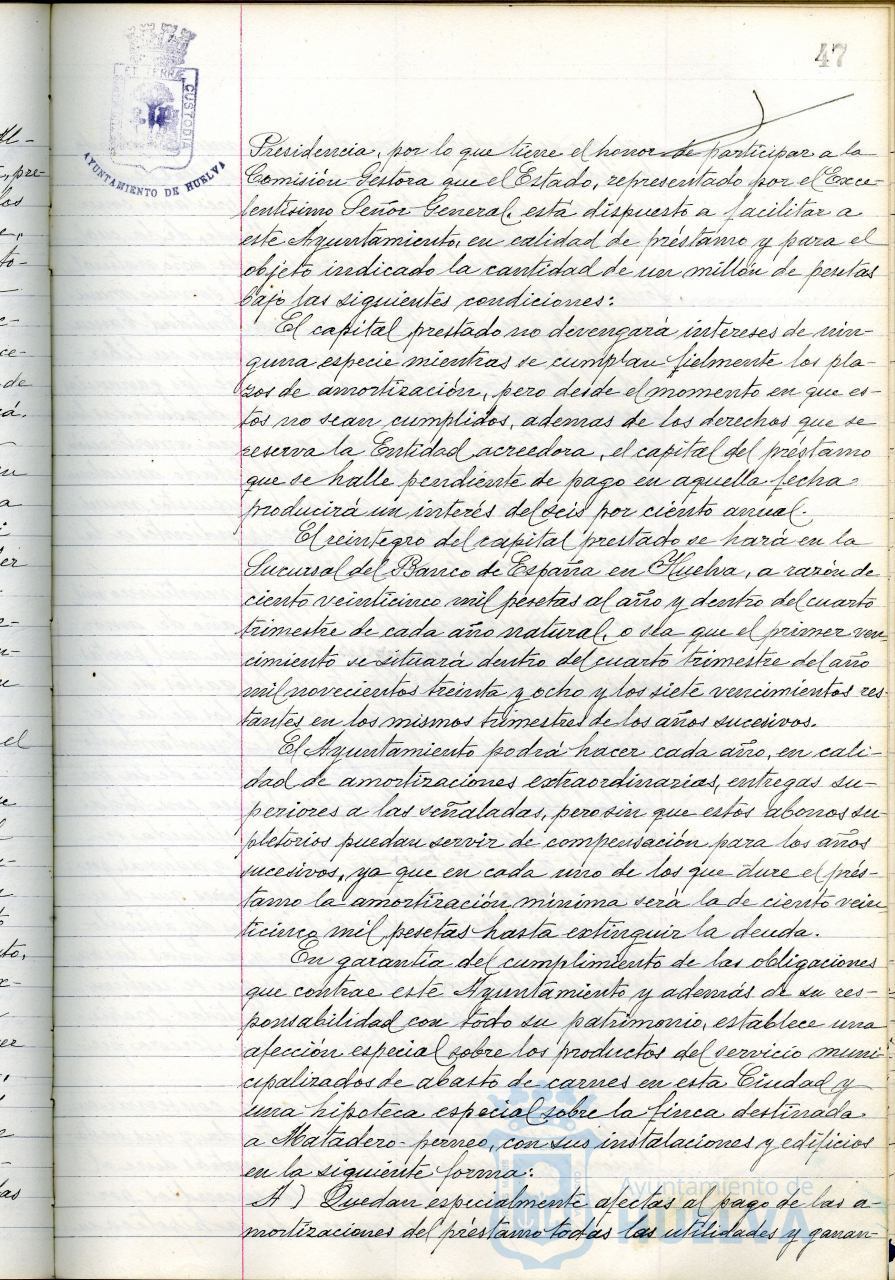 47
PORTUS MARIS ET TERRÆ CUSTODIA
AYUNTAMIENTO DE HUELVA
Presidencia, por lo que tiene el honor de participar a la
Comisión Gestora que el Estado, representado por el Exce-
lentísimo Señor General, está dispuesto a facilitar a
este Ayuntamiento, en calidad de préstamo y para el
objeto indicado la cantidad de un millón de pesetas
bajo las siguientes condiciones:
El capital prestado no devengará intereses de nin-
guna especie mientras se cumplan fielmente los pla-
zos de amortización, pero desde el momento en que es-
tos no sean cumplidos, ademas de los derechos que se
reserva la Entidad acreedora, el capital del préstamo
que se halle pendiente de pago en aquella fecha
producirá un interés del seis por ciento anual.
El reintegro del capital prestado se hará en la
Sucursal del Banco de España en Huelva, a razón de
ciento veinticinco mil pesetas al año y dentro del cuarto
trimestre de cada año natural, o sea que el primer ven-
cimiento se situará dentro del cuarto trimestre del año
mil novecientos treinta y ocho y los siete vencimientos res-
tantes en los mismos trimestres de los años sucesivos.
El Ayuntamiento podrá hacer cada año, en cali-
dad de amortizaciones extraordinarias, entregas su-
periores a las señaladas, pero sin que estos abonos su-
pletorios puedan servir de compensación para los años
sucesivos, ya que en cada uno de los que dure el prés-
tamo la amortización mínima será la de ciento vein-
ticinco mil pesetas hasta extinguir la deuda.
En garantía del cumplimiento de las obligaciones
que contrae este Ayuntamiento y además de su res-
ponsabilidad con todo su patrimonio, establece una
afección especial sobre los productos del servicio muni-
cipalizados de abasto de carnes en esta Ciudad y
una hipoteca especial sobre la finca destinada
a Matadero-perneo, con sus instalaciones y edificios
en la siguiente forma:
A) Quedan especialmente afectas al pago de las a-
mortizaciones del préstamo todas las utilidades y ganan-
Ayuntamiento de
HUELVA